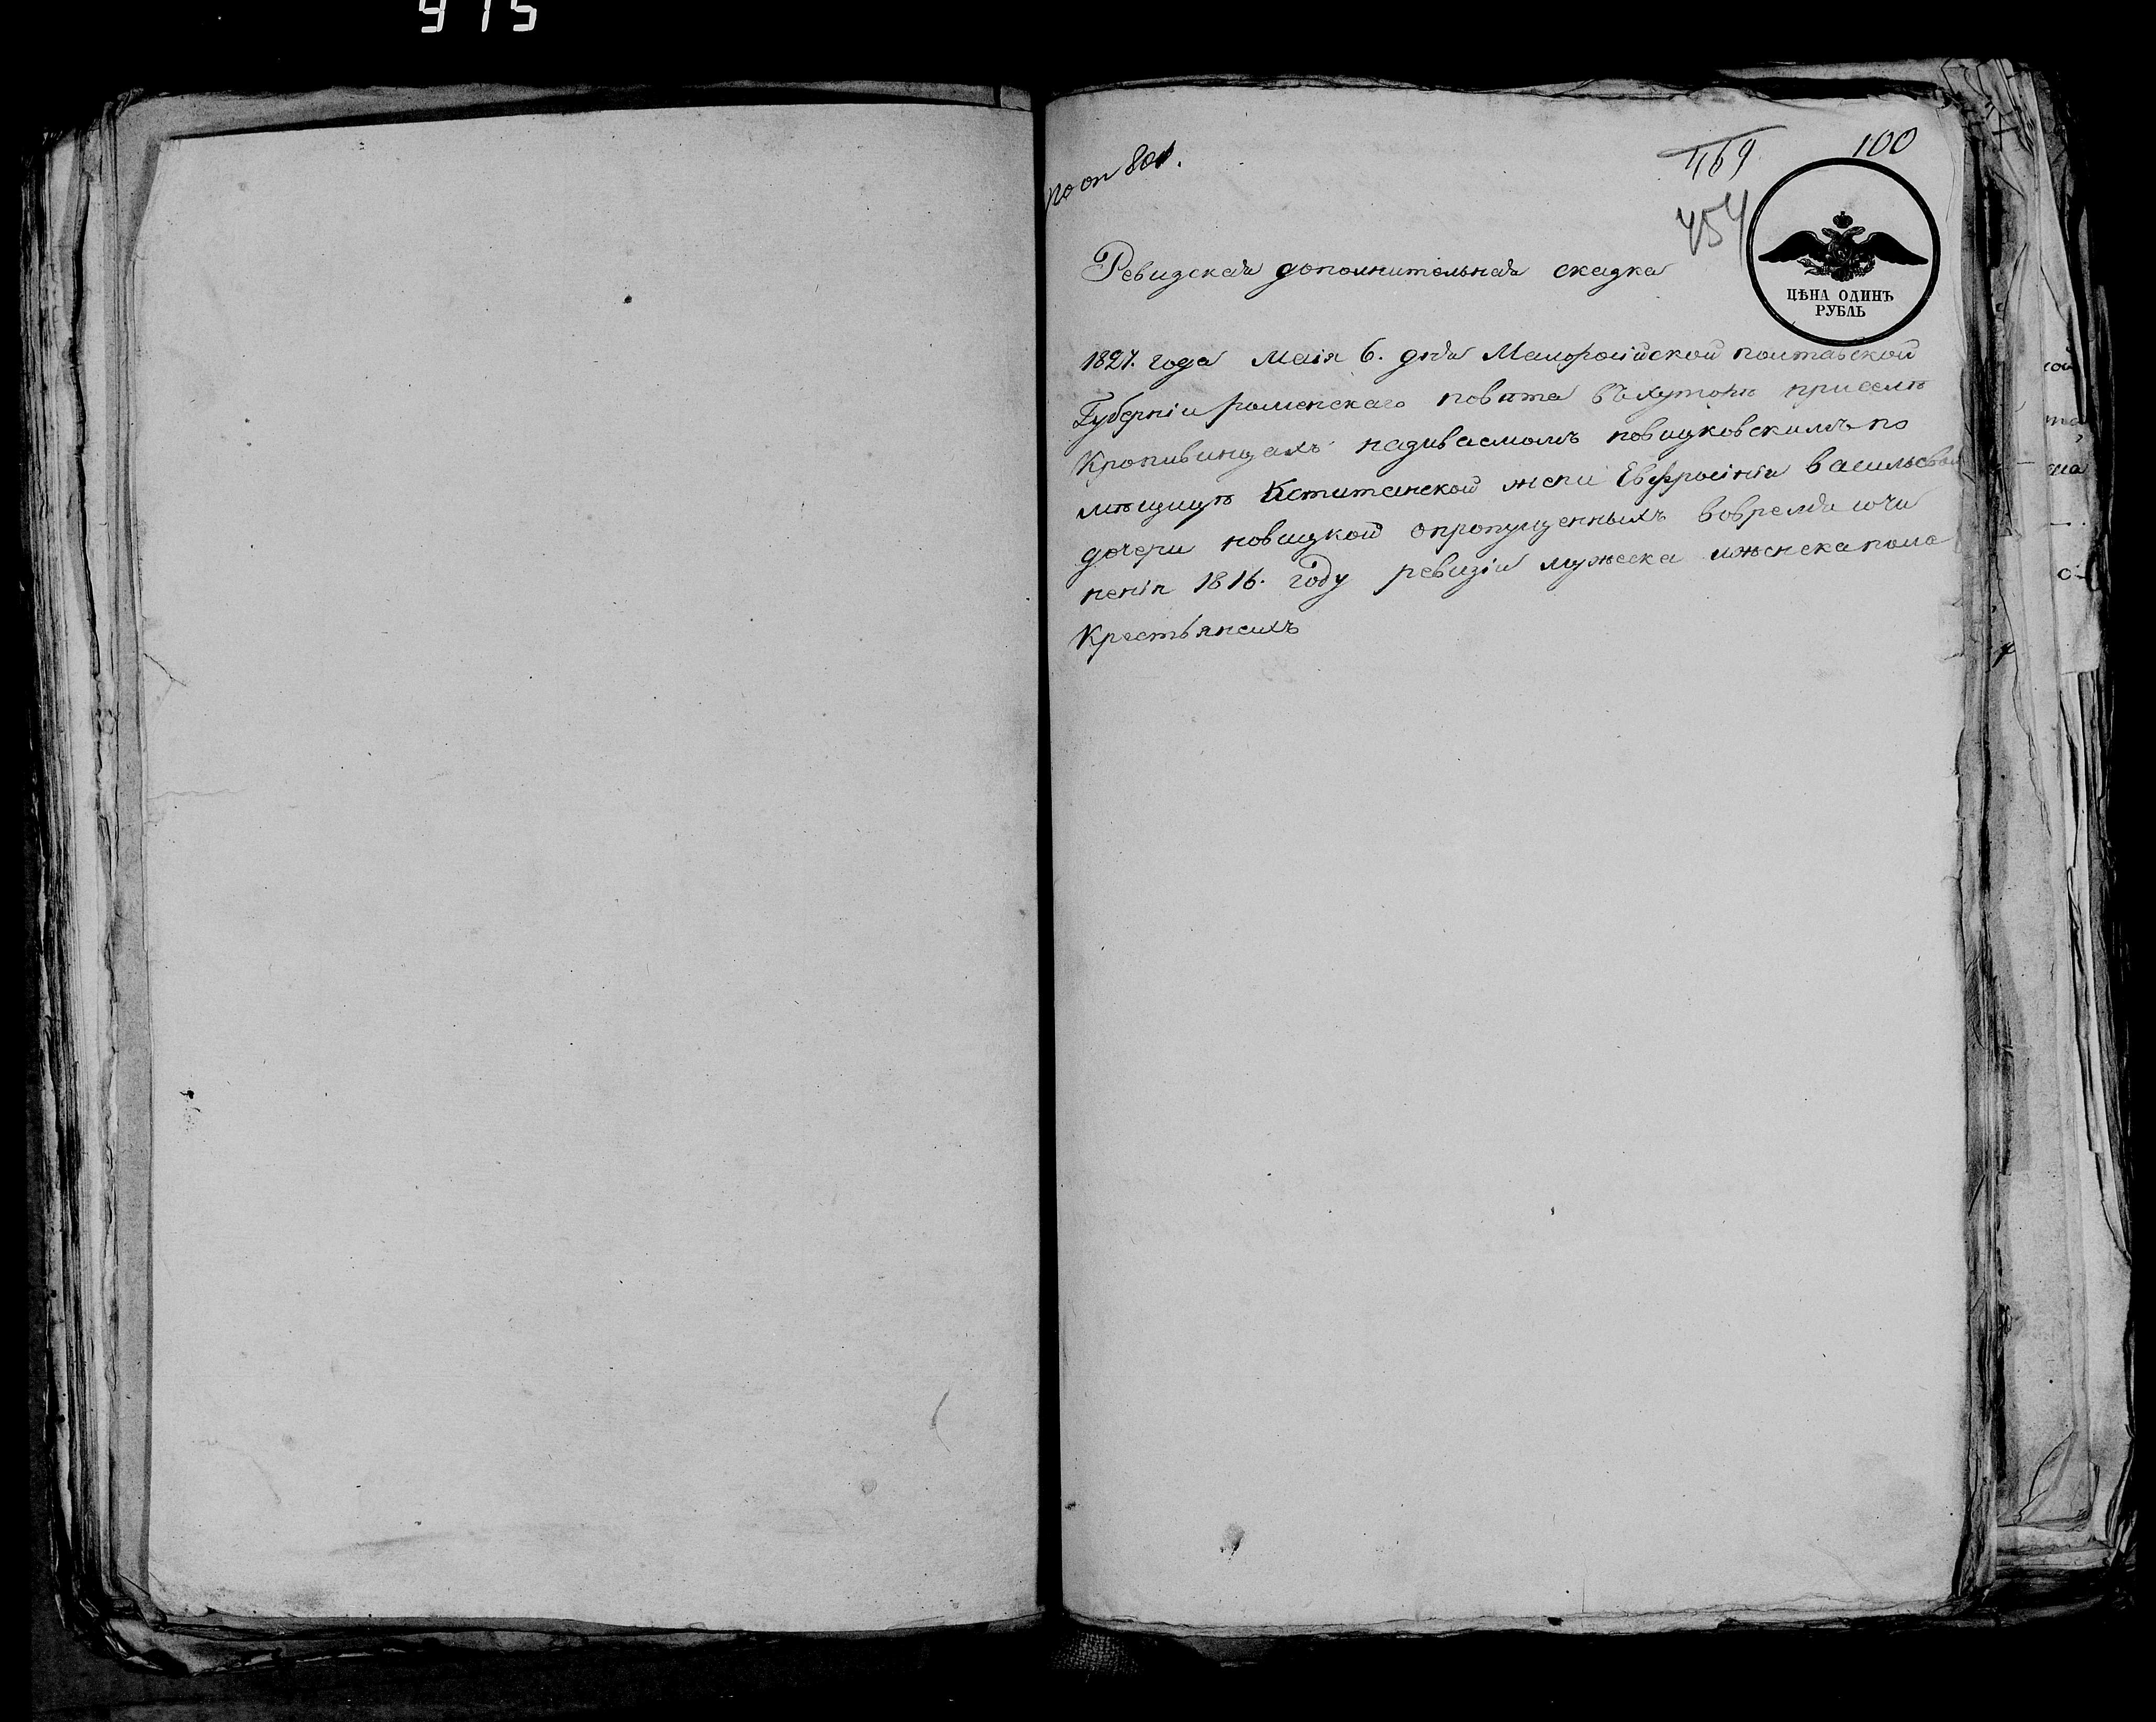 915
по оп 801.
469
100
454
Ревизская дополнительная сказка
ЦѢНА ОДИНЪ
РУБЛЬ
1827. года Маія 6. дня Малоросійской полтавской
Губерніи роменского повѣта въ хуторѣ при селѣ
Кропивинцахъ називаемомъ новицковскимъ по
мѣщицѣ Капитанской жени Евфросініи васильевой
дочери новицкой опропущенныхъ вовремя сочи
неніи 1816. году ревизіи мужеска иженска пола
Крестьянехъ